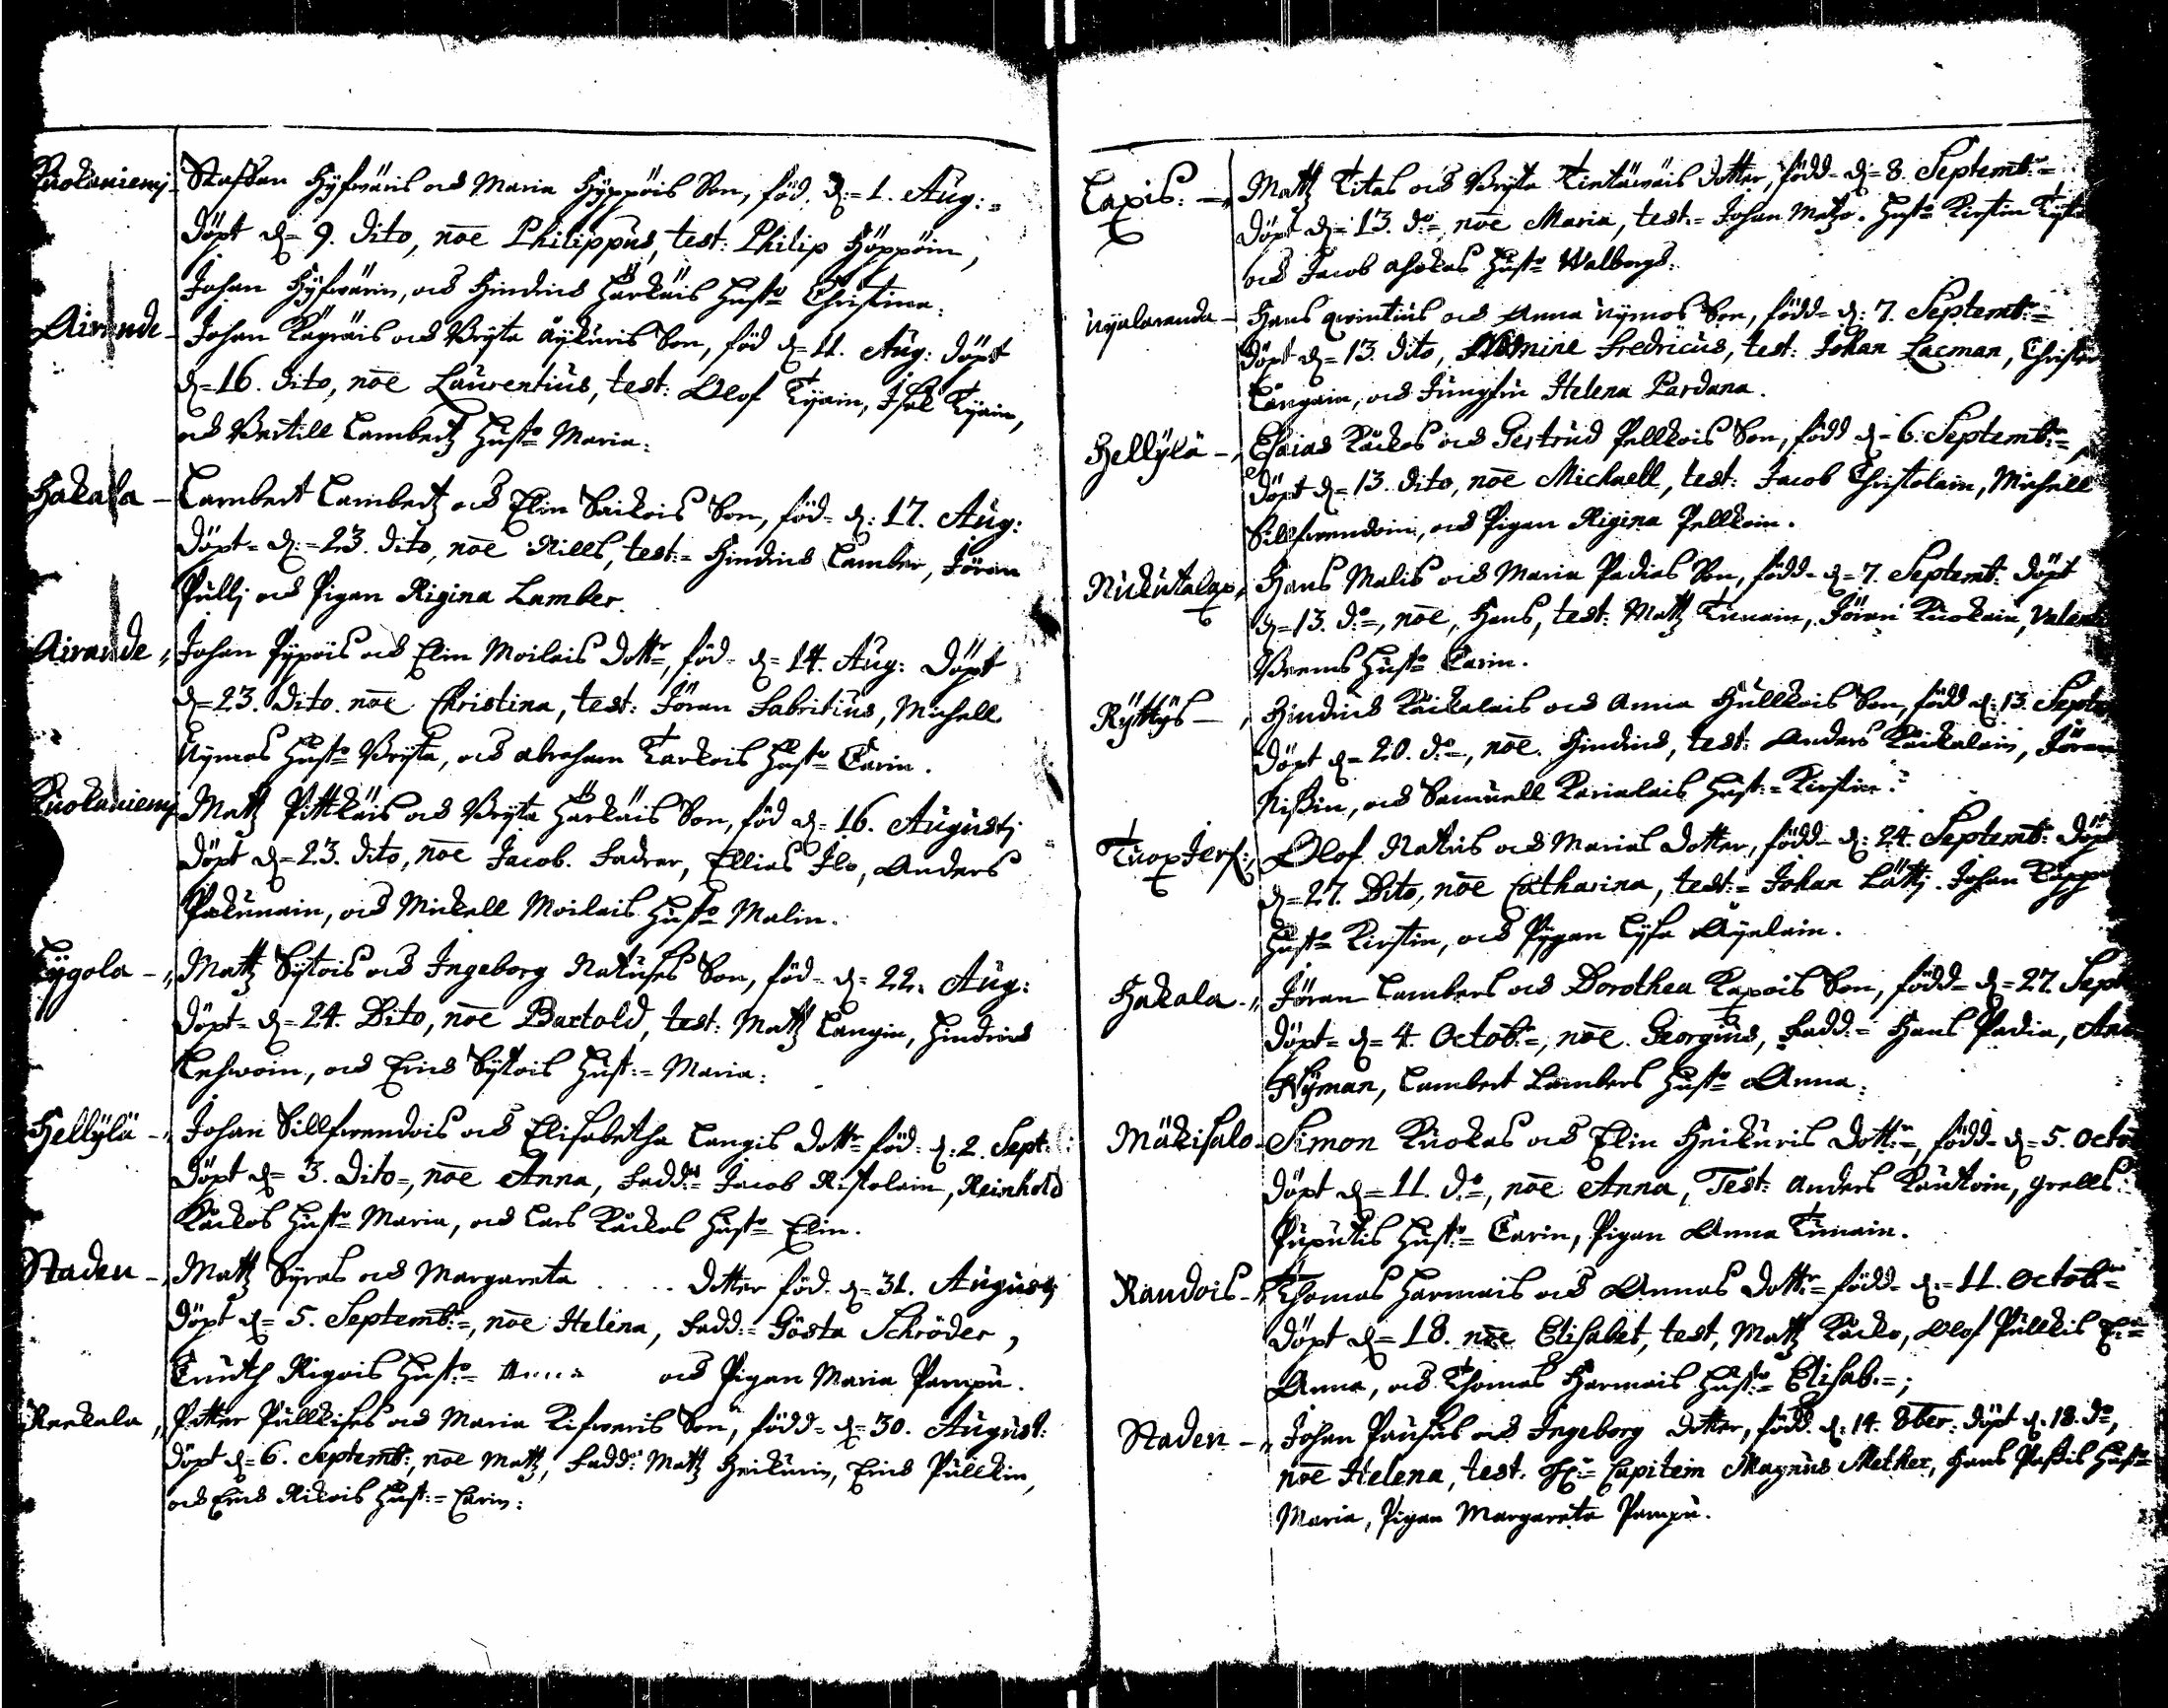 Kuokaniemj - Staffan Hyfwäris och Maria Hyppöis Son, föd. d:= 1. Aug:=
Döpt d= 9. Dito, nōe Philippus, test: Philip Höppöin,
Johan Hyfwärin, och Hindrics Härkäis Hust= Christina.
Airande - Johan Kägräis och Bryta Äykäris Son, föd d= 11. Aug: Döpt
d= 16. Dito, nōe Laurentius, test: Olof Tyäin, Isak Tyäin,
och Bertill Lambertz Hust= Maria.
Hakala - Lambert Lambertz och Elin Saikois Son, föd= d: 17. Aug:
Döpt= d:= 23. Dito, nōe Nills, test:= Hindrics Lamber, Jöran
Pullj och Pigan Rigina Lamber.
Airande, Johan Pypöis och Elin Moilais Dott=, föd= d= 14. Aug: Döpt
d= 23. Dito. nōe Christina, test: Jöran Fabritius, Michell
Nymas Hust= Bryta, och Abraham Tarkois Hust= Carin.
Kuokaniemj Mattz Pittkäis och Bryta Härkäis Son, föd d= 16. Augustj
Döpt d= 23. Dito, nōe Jacob. Fadrar, Ellias Ilo, Anders
Pakunain, och Mickell Moilais Hust= Malin.
Tygola -, Mattz Sytois och Ingeborg Natuses Son, föd= d= 22. Aug:
Döpt= d= 24. Dito, nōe Bartold, test: Mattz Langin, Hindrics
Lehwoin, och Erics Sytois Hust:= Maria:
Hellylä -, Johan Sillfwendois och Elisabetha Langis Dott= föd= d: 2. Sept:
Döpt d= 3. Dito=, nōe Anna, Fadd:= Jacob Ristolain, Reinhold
Käckos Hust= Maria, och Lars Käckos Hust= Elin.
Staden -, Mattz Syras och Margareta .... Dotter föd= d= 31. Augustj
Döpt d= 5. Septemb:=, nōe Helena, Fadd:= Gösta Schröder,
Cnuth Rigois Hust:= och Pigan Maria Pampu.
Reekala, Petter Pullkises och Maria Kifweris Son, född= d= 30. August:
Döpt d= 6. Septemb:, nōe Mattz, Fadd: Mattz Heikurin, Erics Pullkin,
och Erics Rikois Hust:= Carin:
Laxis: -, Mattz Titas och Bryta Tintäwäis Dotter, född= d= 8. Septemb:=
Döpt d= 13. d:o=, nōe Maria, test:= Johan Matzo. Hust= Kirstin
och Jacob Ahokas Hust= Walborg:
Nyalaranda - Hans Qwintius och Anna Nymos Son, född= d: 7. Septemb:=
Döpt d= 13. Dito, Nomine Fredricus, test: Johan Lacman,
Längain, och Jungfru Helena Pardana.
Hellylä -, Esaias Käckos och Gertrud Pellkois Son, född d= 6. Septemb:=,
Döpt d= 13. Dito, nōe Michaell, test: Jacob Christolain, Michell
Sillfwendoin, och Pigan Rigina Pellkoin.
Nukutalax, Hans Malis och Maria Padias Son, född= d= 7. Septemb: Döpt
d= 13. d:o=, nōe, Hans, test: Mattz Tinain, Jöran Kuokain,
Brems Hust= Carin.
Ryttys -, Hindrics Käckalais och Anna Hullkois Son, född d: 13.
Döpt d= 20. d:o=, nōe. Hindrics, test: Anders Käickalain, Jöran
Nissin, och Samuell Karialais Hust:= Kirstin:
TuoxJerf:, Olof Natus och Marias Dotter, född= d: 24. Septemb:
d= 27. Dito, nōe Catharina, test:= Johan Lättj. Johan
Hust= Kirstin, och Pygan Lysa Äyälain.
Hakala -, Jöran Lambers och Dorothea Kapois Son, född= d= 27.
Döpt= d= 4. Octob:=, nōe. Georgius, Fadd:= Hans Padia,
Nyman, Lambert Lambers Hust= Anna:
Mäkisalo - Simon Kuokas och Elin Heikuris Dott:=, född= d= 5.
Döpt d= 11. d:o=, nōe Anna, Test: Anders Rautoin, Grells:
Puputis Hust:= Carin, Pigan Anna Tinain.
Raudois -, Thomas Harmais och Annas Dott:= född= d:= 11. Octob:=
Döpt d= 18. nōe Elisabet, test, Mattz Käcko, Olof Pullkis
Anna, och Thomas Harmais Hust:= Elisab:=;
Staden -, Johan Pausus och Ingeborg Dotter, född. d: 14. 8ber: Döpt d: 18. d:o,
nōe Helena, test: H:= Capitein Magnus Mether, Hans Passis Hust=
Maria, Pigan Margareta Pampu.